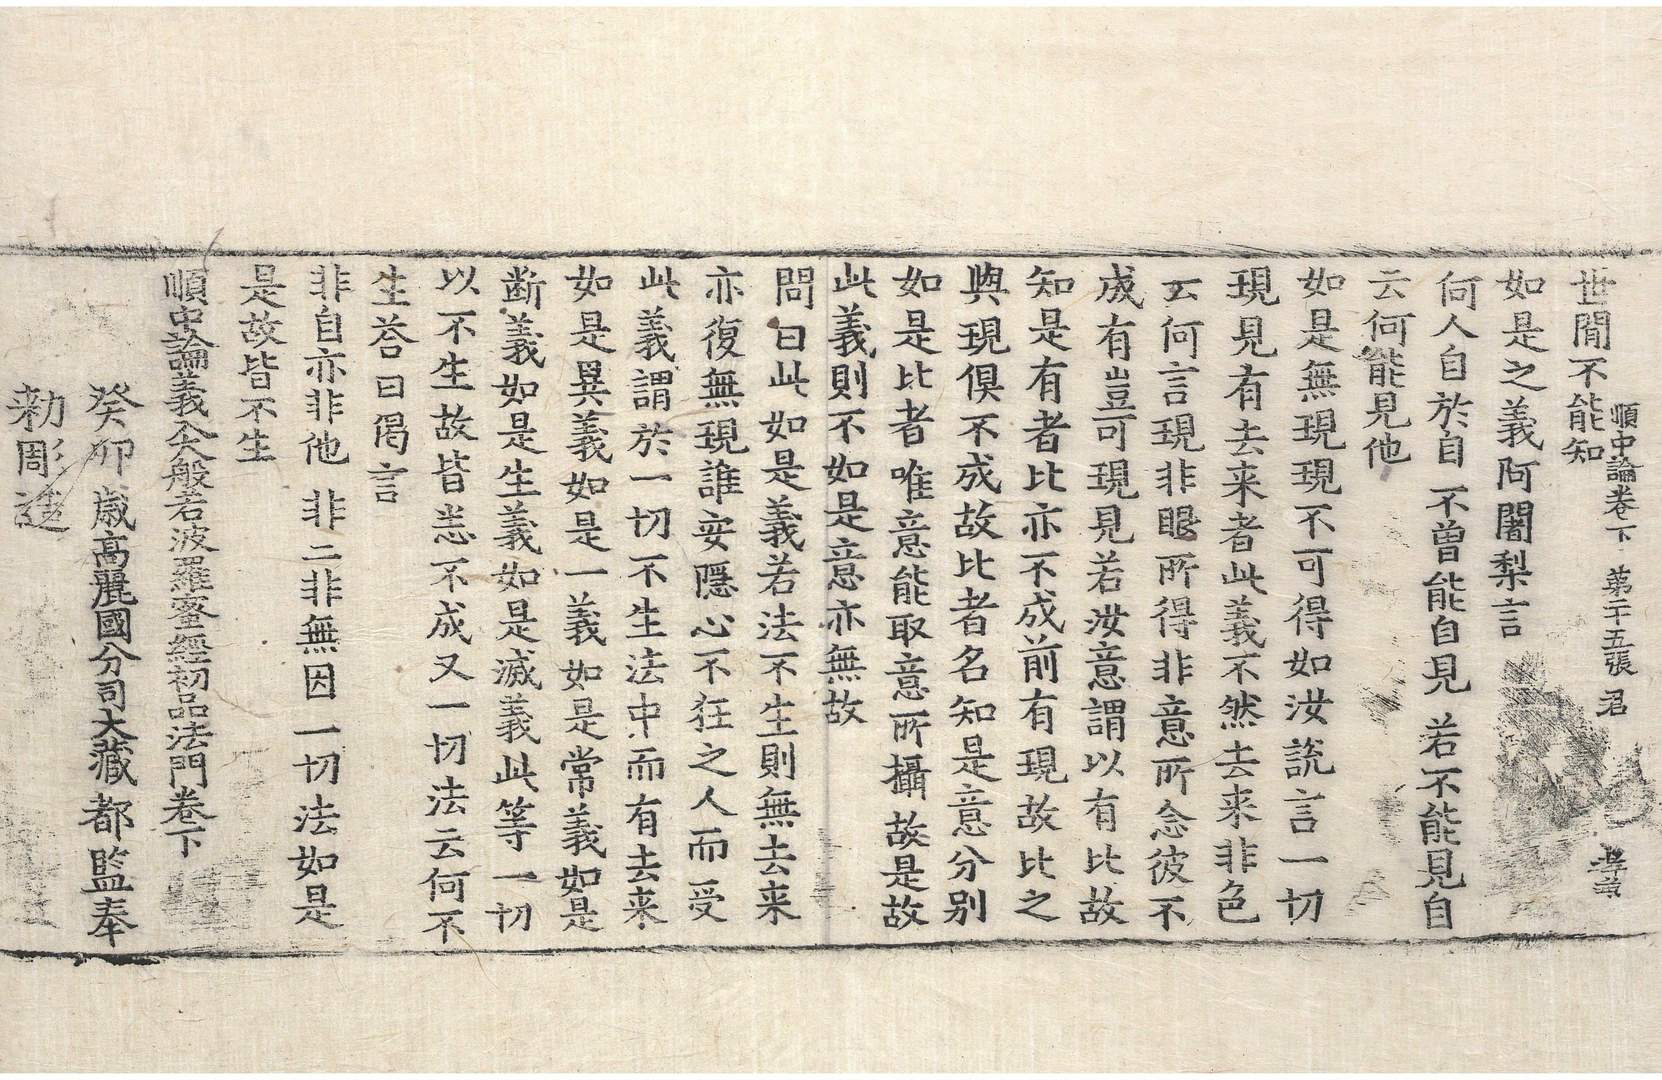 順中論卷下 第二十五張 君
世間不能知
如是之義阿闍梨言
何人自於自 不曾能自見 若不能見自
云何能見他
如是無現現不可得如汝說言一切
現見有去来者此義不然去来非色
云何言現非眼所得非意所念彼不
成有豈可現見若汝意謂以有比故
知是有者比亦不成前有現故比之
與現俱不成故比者名知是意分別
如是比者唯意能取意所攝故是故
此義則不如是意亦無故
問曰此如是義若法不生則無去来
亦復無現誰安隱心不狂之人而受
此義謂於一切不生法中而有去来
如是異義如是一義如是常義如是
断義如是生義如是滅義此等一切
以不生故皆悉不成又一切法云何不
生荅曰偈言
非自亦非他 非二非無因 一切法如是
是故皆不生
順中論義入大般若波羅蜜經初品法門卷下
癸卯歲高麗國分司大藏都監奉
勑彫造